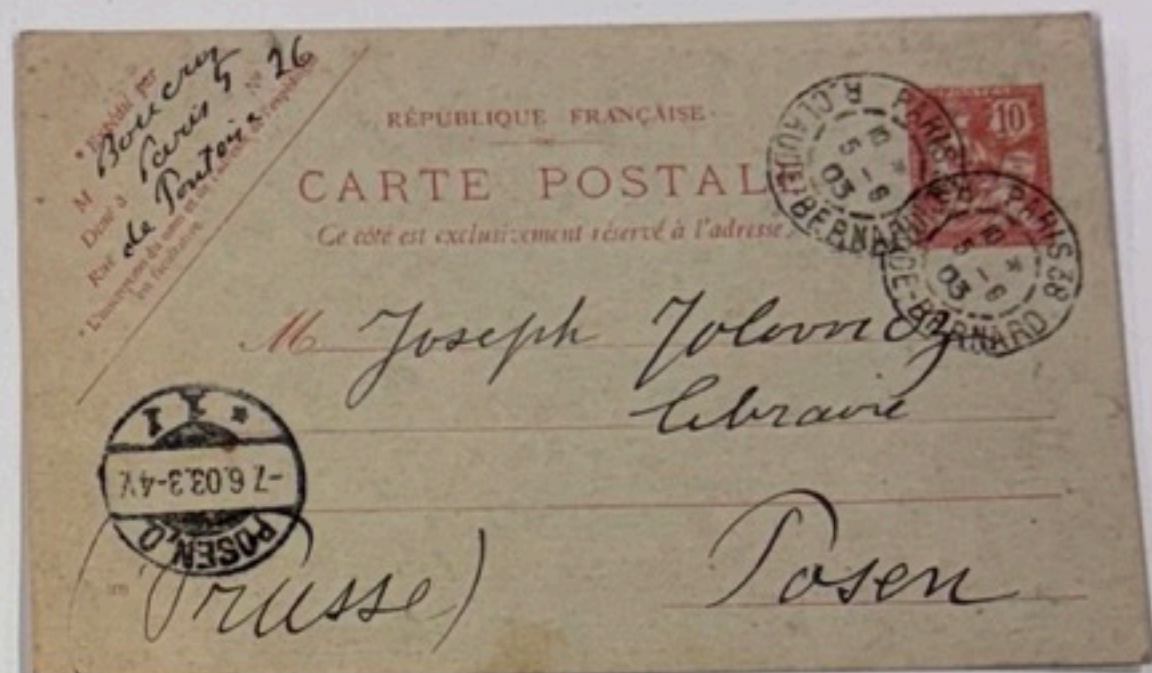 Expédié par
M Boucry
Demt à Paris 5
Rue de Pontoise No 26
L'inscription du nom et de l'adresse de l'expéditeur
est facultative.
RÉPUBLIQUE FRANÇAISE
CARTE POSTALE
Ce côté est exclusivement réservé à l'adresse.
10
PARIS 38
R. CLAUDE-BERNARD
10 *
5 - 6
03
PARIS 38
R. CLAUDE-BERNARD
10 *
5 - 6
03
M Joseph Jolowicz
libraire
Posen
(Prusse)
POSEN, O.
-7.6.03.3-4V.
* 1 1